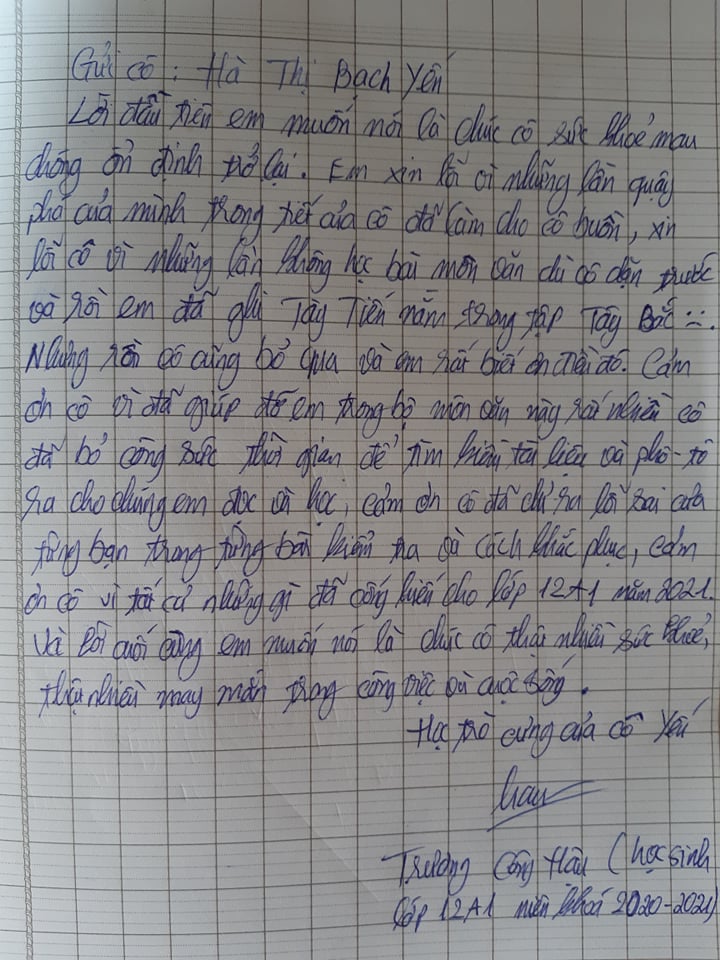 Gửi cô : Hà Thị Bạch Yến
Lời đầu tiên em muốn nói là chúc cô sức khoẻ mau
chóng ổn định trở lại. Em xin lỗi vì những lần quậy
phá của mình trong tiết của cô đã làm cho cô buồn, xin
lỗi cô vì những lần không học bài môn văn dù cô dặn trước
và rồi em đã ghi Tây Tiến nằm trong tập Tây Bắc :-.
Nhưng rồi cô cũng bỏ qua và em rất biết ơn điều đó. Cảm
ơn cô vì đã giúp đỡ em trong bộ môn văn này rất nhiều cô
đã bỏ công sức thời gian để tìm kiếm tài liệu và phô-tô
ra cho chúng em đọc và học, cảm ơn cô đã chỉ ra lỗi sai của
từng bạn trong từng bài kiểm tra và cách khắc phục, cảm
ơn cô vì tất cả những gì đã cống hiến cho lớp 12A1 năm 2021.
Và lời cuối cùng em muốn nói là chúc cô thật nhiều sức khoẻ,
thật nhiều may mắn trong công việc và cuộc sống.
Học trò cưng của cô Yến
Hau
Trương Công Hậu (học sinh
lớp 12A1 niên khoá 2020-2021)